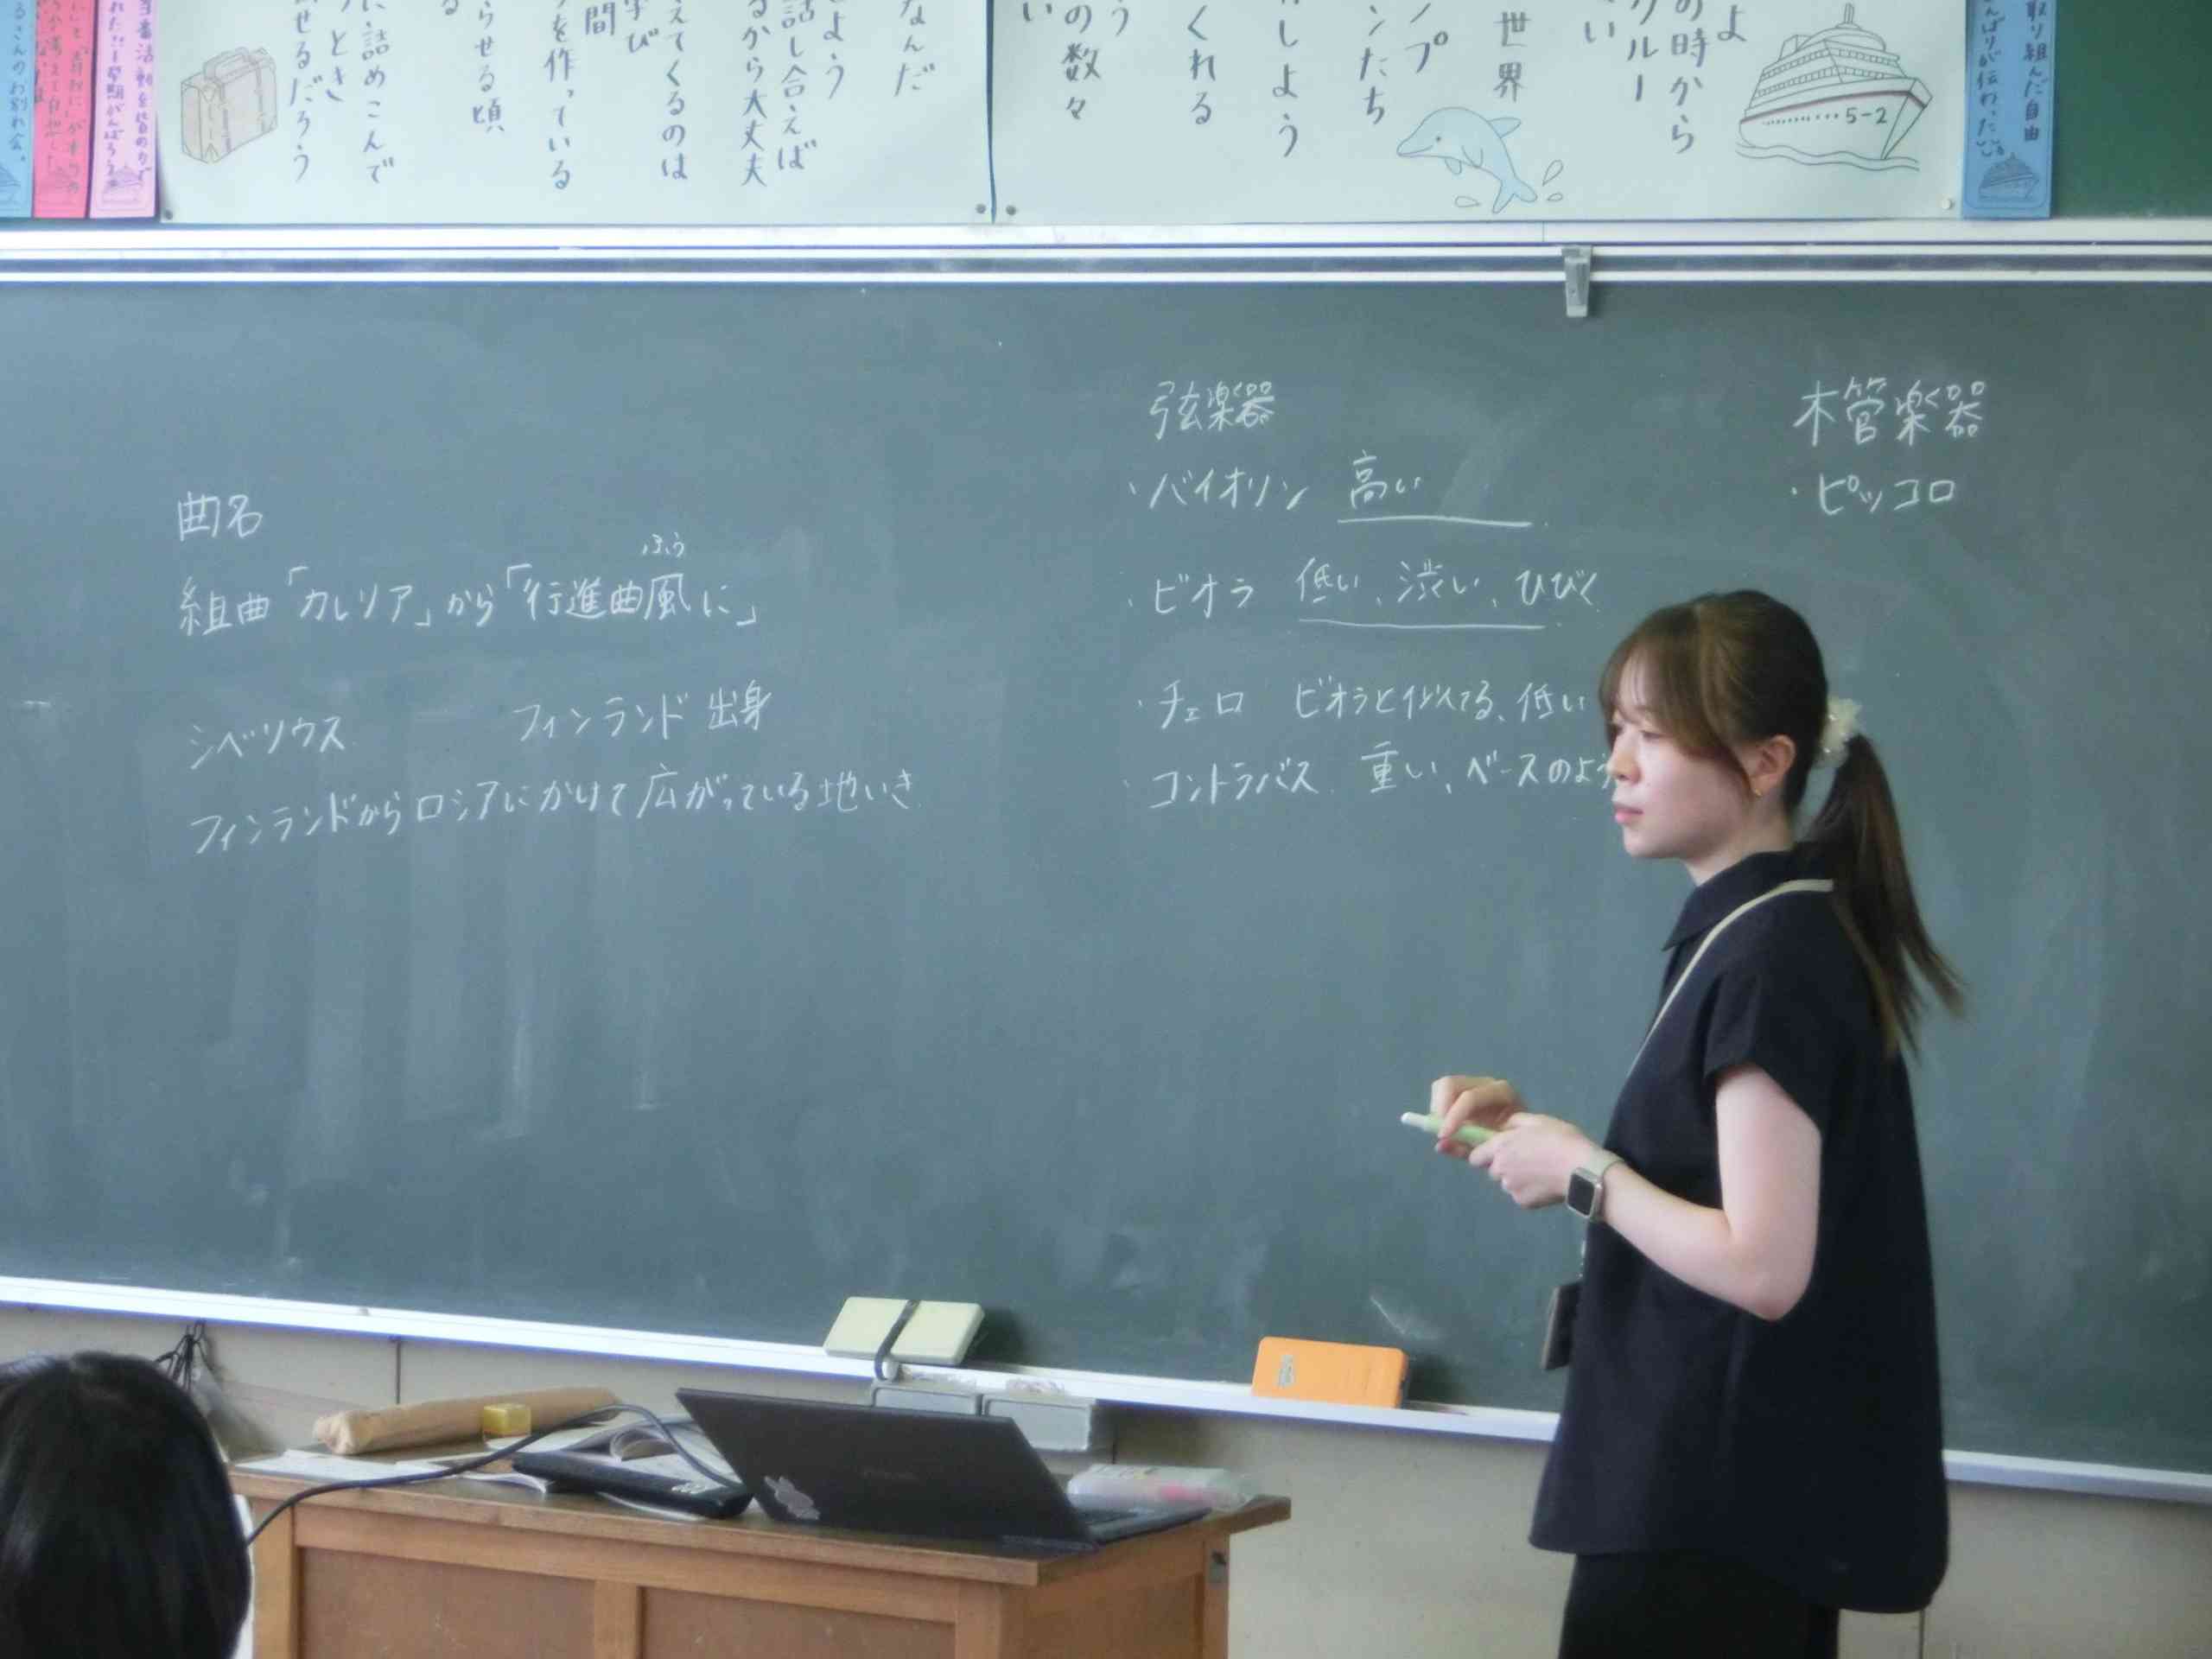 よ
の時から
グルー
い
世界
プ
ンたち
しよう
くれる
う
の数々
い
なんだ
よう
話し合えば
るから大丈夫
えてくるのは
学び
間
を作っている
らせる頃
る
に詰めこんで
とき
せるだろう
5-2
取り組んだ自由
曲名
ふう
組曲「カレリア」から「行進曲風に」
シベリウス フィンランド出身
フィンランドからロシアにかけて広がっている地いき
弦楽器
・バイオリン 高い
・ビオラ 低い、渋い、ひびく
・チェロ ビオラと似てる、低い
・コントラバス 重い、ベースのよう
木管楽器
・ピッコロ